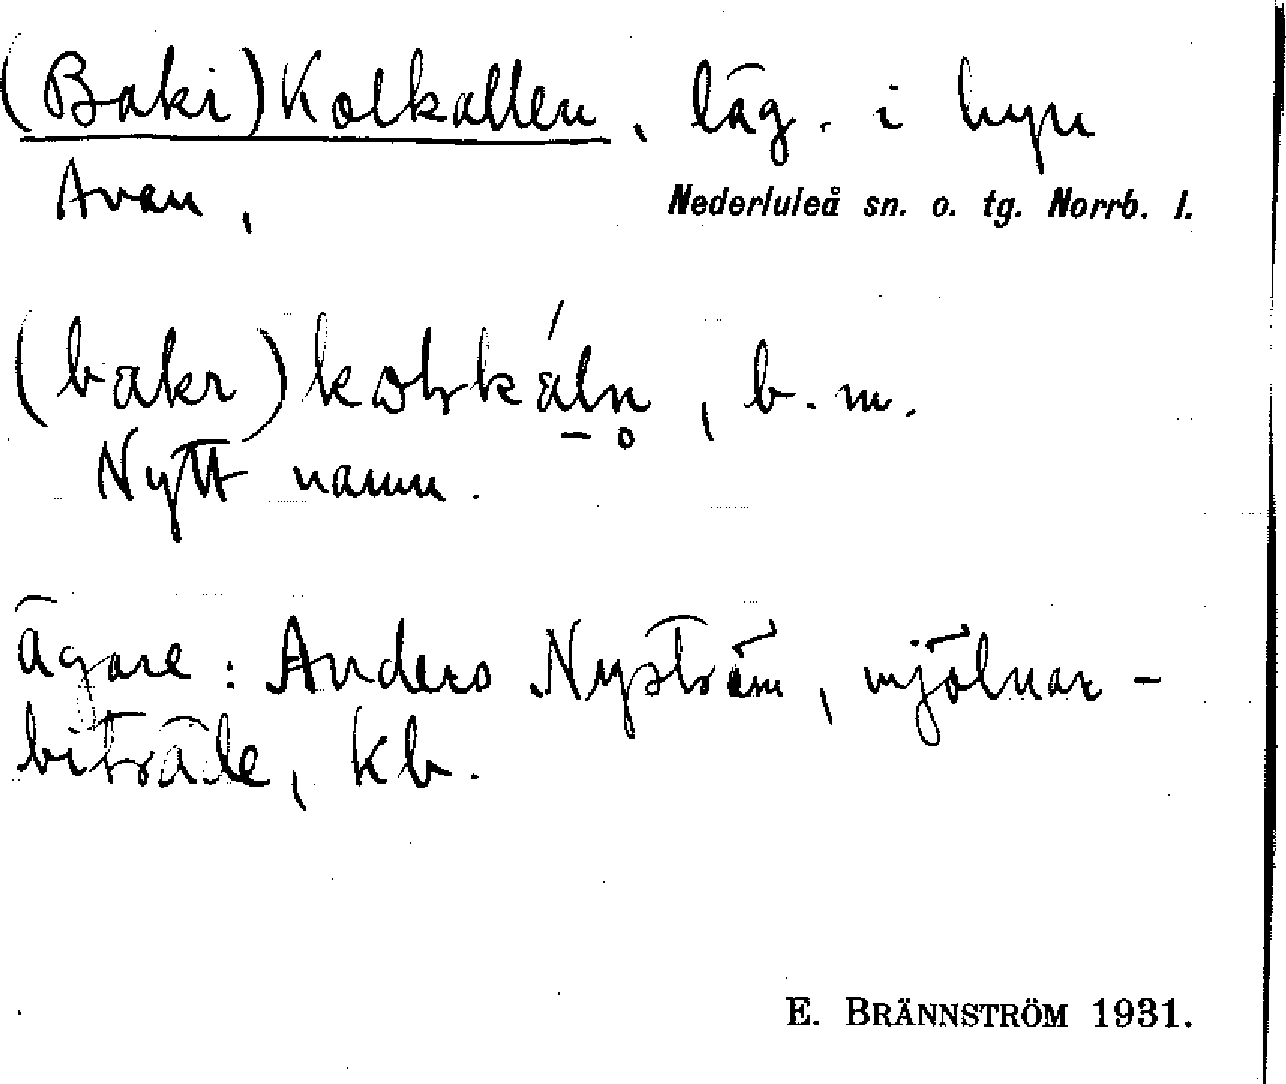 (Baki)Kolkallen, läg. i byn
Avan,
Nederluleå sn. o. tg. Norrb. l.
b. m.
Nytt namn.
ägare: Anders Nyström, mjölnar-
biträde, kb.
E. BRÄNNSTRÖM 1931.